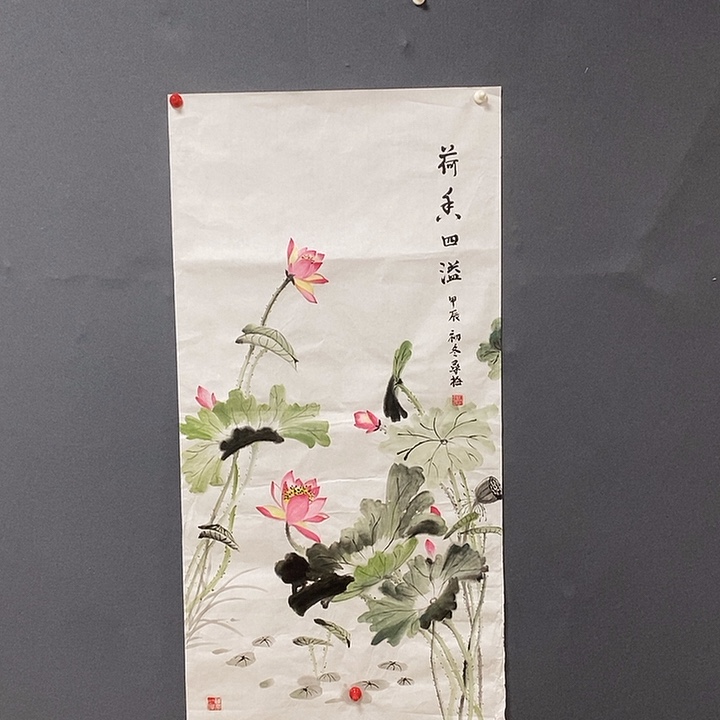 荷香四溢
甲辰初冬桑梅